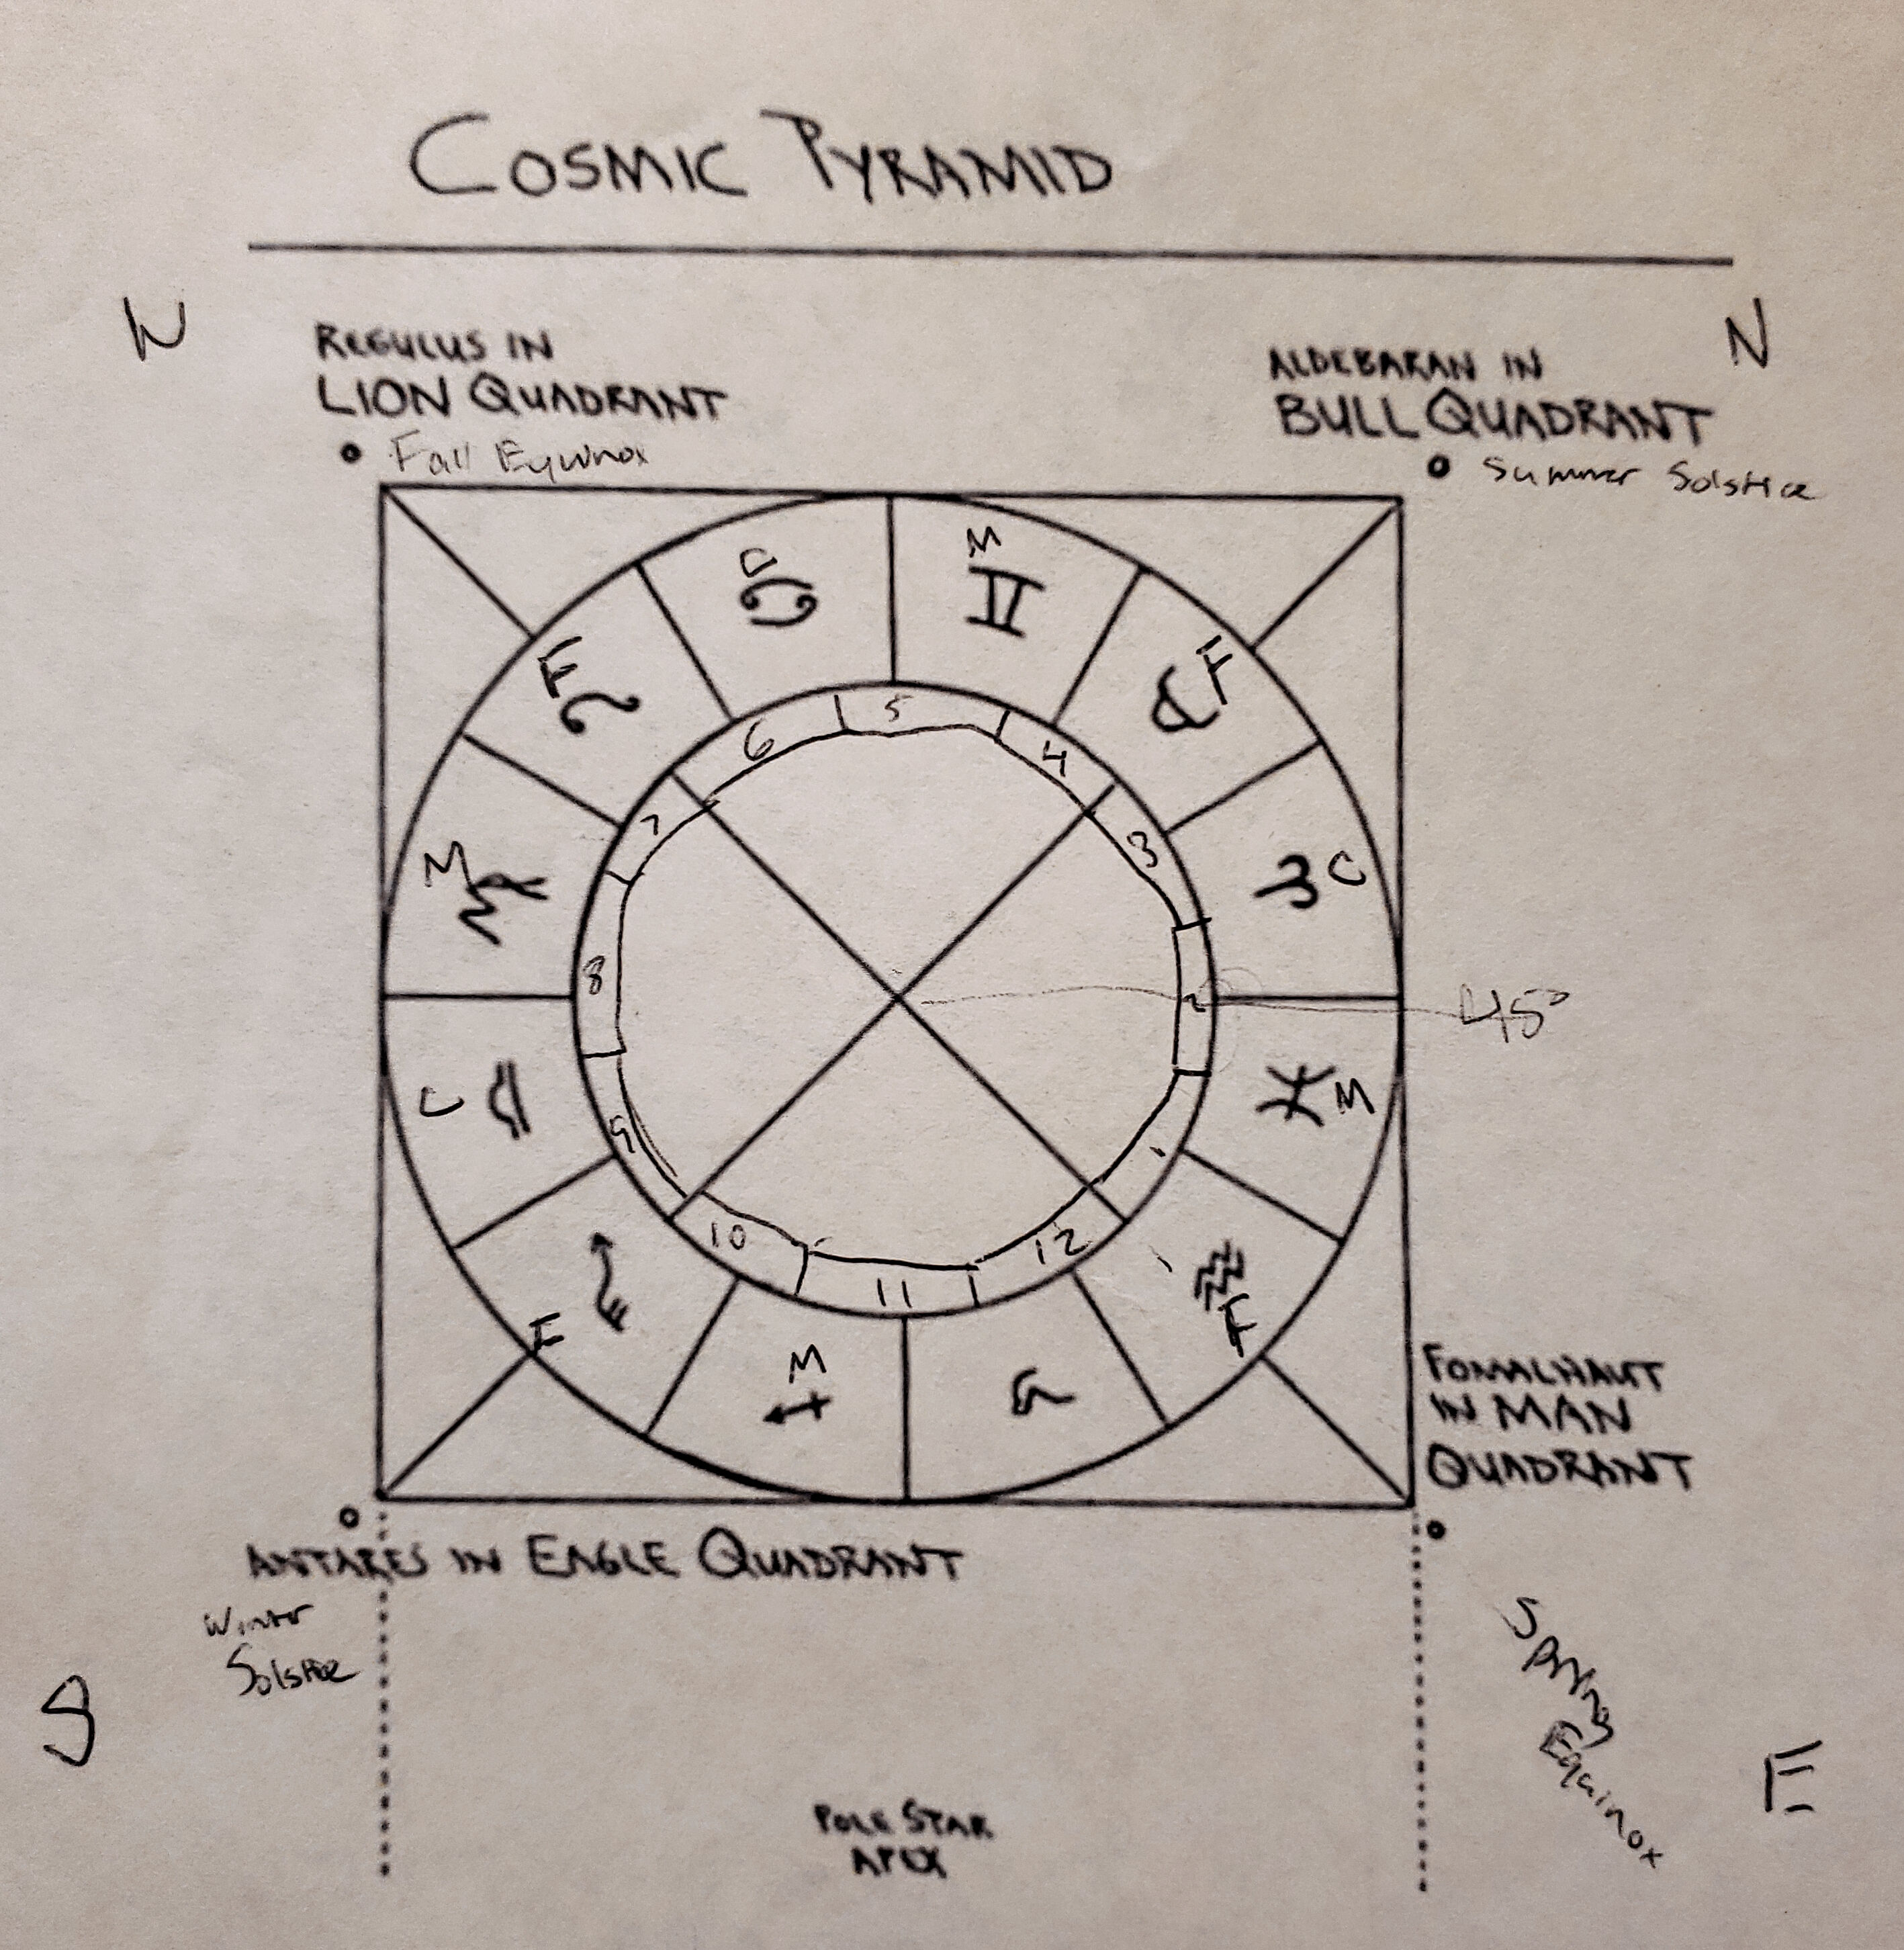 COSMIC PYRAMID
W
N
REGULUS IN
LION QUADRANT
Fall Equinox
ALDEBARAN IN
BULL QUADRANT
Summer Solstice
C
♋
M
♊
F
♌
F
♉
M
♍
C
♈
C
♎
M
♓
F
♏
M
♐
♑
♒
F
5
6
4
7
3
8
2
45°
9
1
10
11
12
FOMALHAUT
IN MAN
QUADRANT
ANTARES IN EAGLE QUADRANT
Winter
Solstice
S
Spring
Equinox
E
POLE STAR
APEX